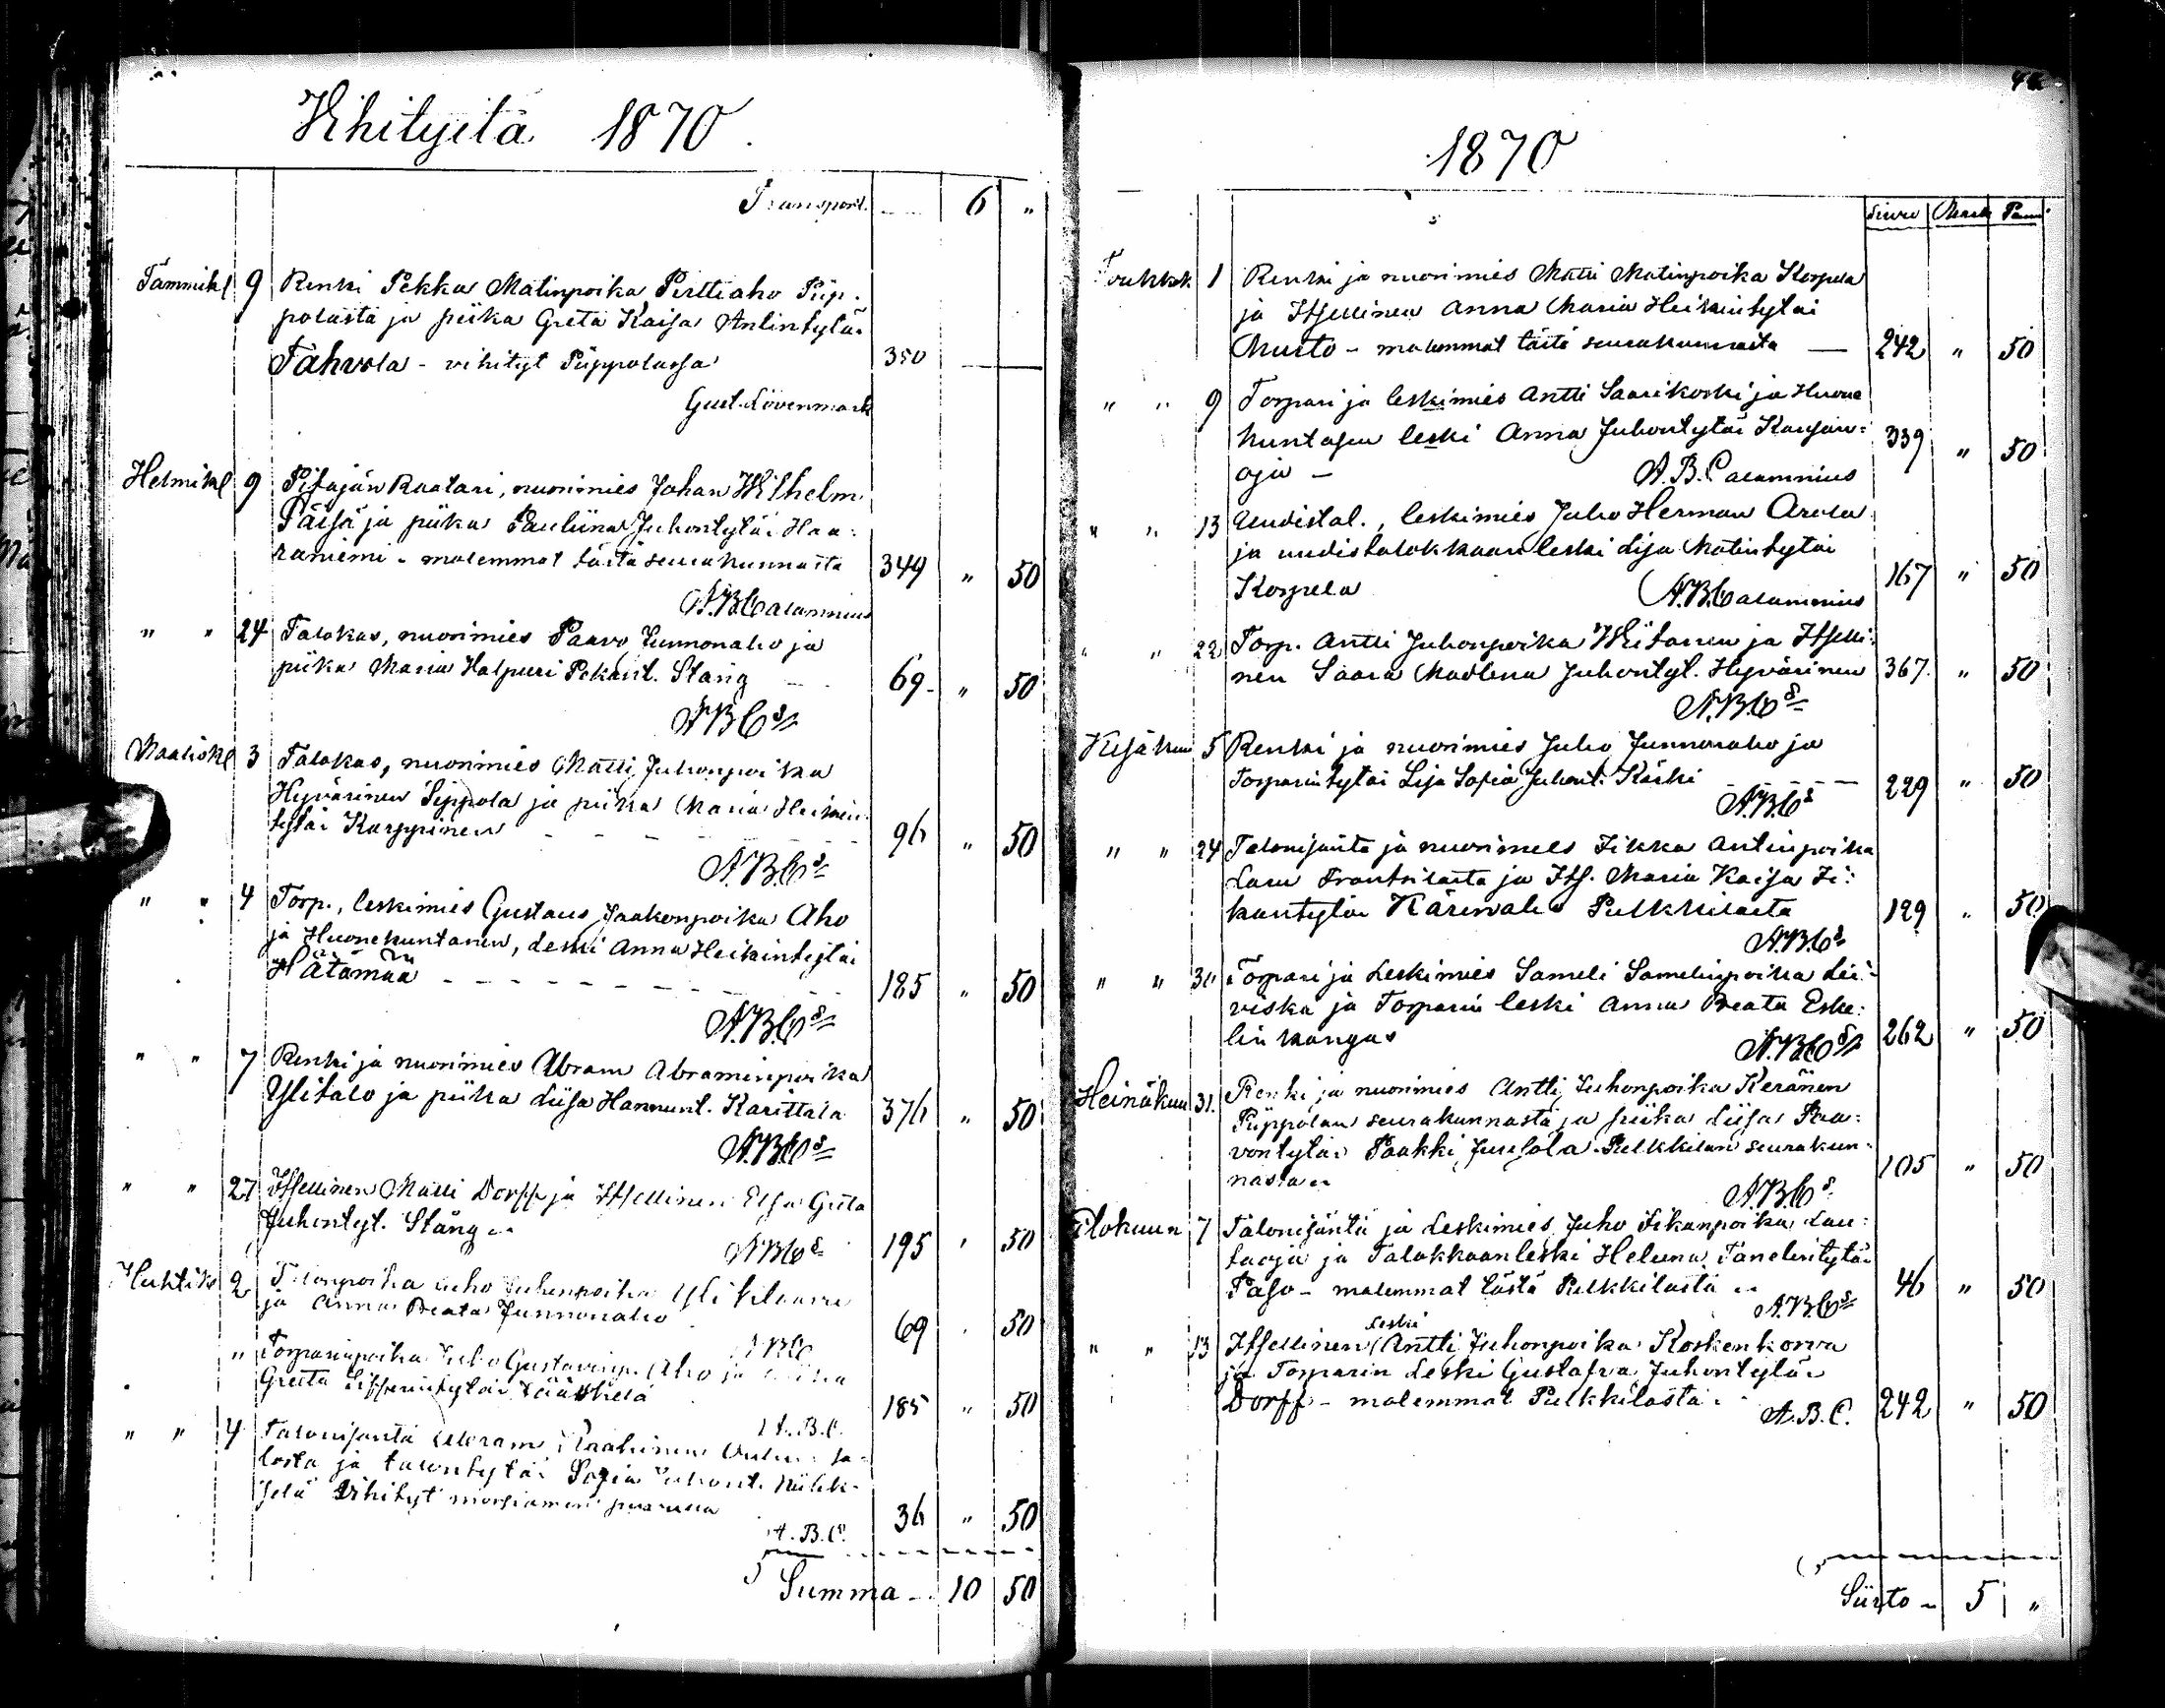 Wihityitä 1870.
Transport. 6 "
Tammik 9 Renki Pekka Matinpoika Perttiaho Piip-
polasta ja piika Greta Kaisa Antintytär
Tahvola - vihityt Piippolassa 350
Gust. Lövenmark
Helmik 9 Pitäjän Raatari, nuorimies Johan Wilhelm
Päisä ja piika Pauliina Juhontytär Haa-
raniemi - molemmat tästä seurakunnasta 349 " 50
A.B. Calamnius
" " 24 Talokas, nuorimies Paavo Junnonaho ja
piika Maria Halpuri Pekant. Stång 69 - " 50
A.B.Cs
Maalisk 3 Talokas, nuorimies Matti Juhonpoika
Hyvärinen Sippola ja piika Maria Heikin-
tytär Karppinen 96 " 50
A.B.Cs
" " 4 Torp., leskimies Gustaus Jaakonpoika Aho
ja Huonekuntanen, Leski Anna Heikintytär
Hätämaa 185 " 50
A.B.Cs
" " 7 Renki ja nuorimies Abram Abraminpoika
Ylitalo ja piika Liisa Hannunt. Karittala 376 " 50
A.B.Cs
" " 27 Itsellinen Matti Dorff ja Itsellinen Elsa Greta
Juhontyt. Stång 195 " 50
A.B.Cs
Huhtik 2 Juho Juhonpoika Yli
ja Anna Beata Junnonaho 69 . 50
A.B.C
" Torparinpoika Juho Gustavinp. Aho ja piika
Greeta 185 " 50
A.B.C.
" " 4 Talonisäntä Abram Raahinen
losta ja talontytär Sofia Juhont.
selä Vihityt morsiamen 36 " 50
A.B.C.
Summa - 10 50
1870
Sivu Mark Penni
Toukok 1 Renki ja nuorimies Matti Matinpoika Korpela
ja Itsellinen Anna Maria Heikintytär
Musto - molemmat tästä seurakunnasta — 242 " 50
" " 9 Torpari ja leskimies Antti Saarikoski ja Huone
kuntasen leski Anna Juhontytär Kansan-
oja - 339 " 50
A.B. Calamnius
" " 13 Uudistal., leskimies Juho Herman Arola
ja uudistalokkaan leski Lisa Matintytär
Korpela 167 " 50
A.B. Calamnius
" " 22 Torp. Antti Juhonpoika Wiitanen ja Itselli-
nen Saara Madlena Juhontyt. Hyvärinen 367. " 50
A.B.Cs
Kesäkuu 5 Renki ja nuorimies Juho Junnonaho ja
Torparintytär Lisa Sofia Juhont. Käski 229 " 50
A.B.Cs
" " 24 Talonisäntä ja nuorimies Iikka Antinpoika
Laru Frantsilasta ja Its. Maria Kaisa Ii-
kantytär Kärsvala Pulkkilasta 129 " 50
A.B.Cs
" " 30 Torpari ja Leskimies Sameli Samelinpoika Lii-
viska ja Torparin leski Anna Beata Eske-
linkangas 262 " 50
A.B.Cs
Heinäkuu 31. Renki ja nuorimies Antti Juhonpoika Keränen
Piippolan seurakunnasta ja piika Liisa Paa-
vontytär Paakki Jussola Pulkkilan seurakun-
nasta 105 " 50
A.B.Cs
Elokuun 7 Talonisäntä ja Leskimies Juho Iikanpoika Lau-
taoja ja Talokkaanleski Helena Tanelintytär
Paso - molemmat tästä Pulkkilasta 46 " 50
A.B.Cs
" " 13 Itsellinen Leski Antti Juhonpoika Koskenkorva
ja Torparin Leski Gustafva Juhontytär
Dorff - molemmat Pulkkilasta 242 " 50
A.B.C.
Siirto - 5 "